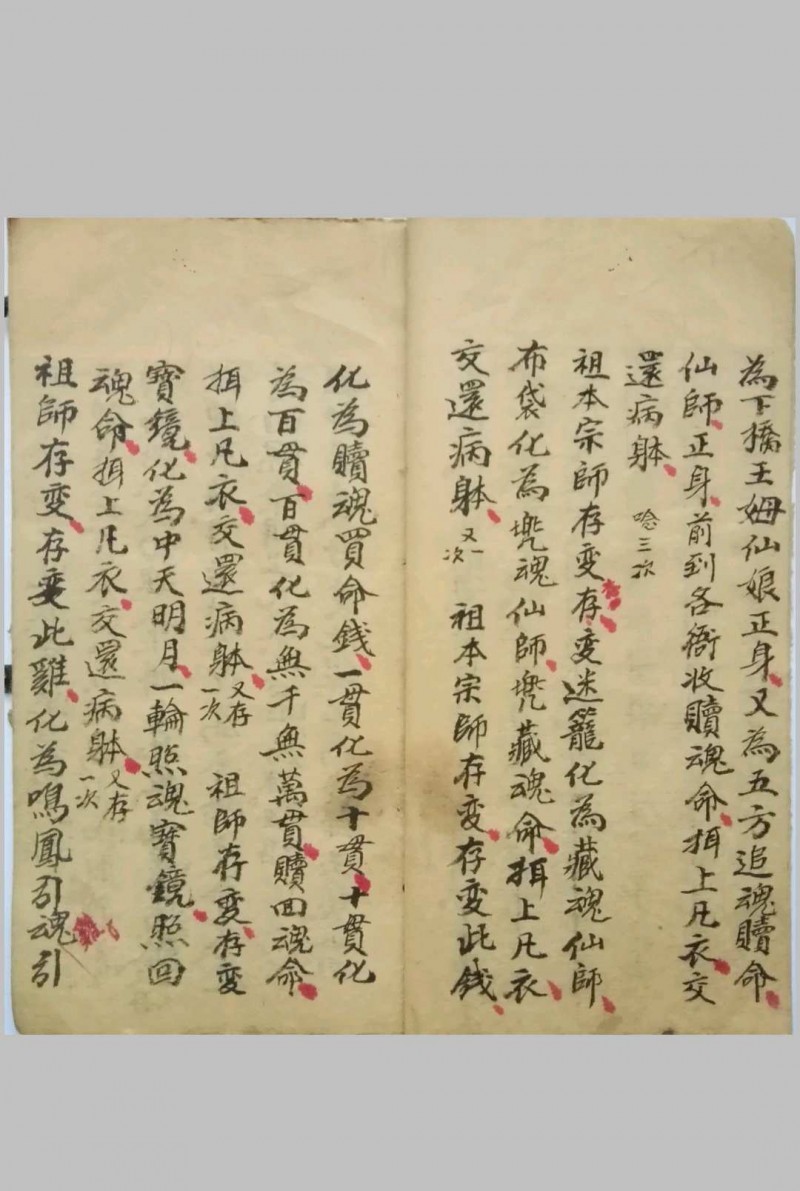 為下橋王姆仙娘正身又為五方追魂贖命
仙師正身前到各衙收贖魂命揖上凡衣交
還病躰 唸三次
祖本宗師存变存变迷籠化為藏魂仙師
布袋化為兠魂仙師兠藏魂命揖上凡衣
交還病躰 又一次 祖本宗師存变存变此錢
化為贖魂買命錢一貫化為十貫十貫化
為百貫百貫化為無千無萬貫贖回魂命
揖上凡衣交還病躰 又存一次 祖師存变存变
寶鏡化為中天明月一輪照魂寶鏡照回
魂命揖上凡衣交還病躰 又存一次
祖師存变存变此雞化為鳴鳳引魂引